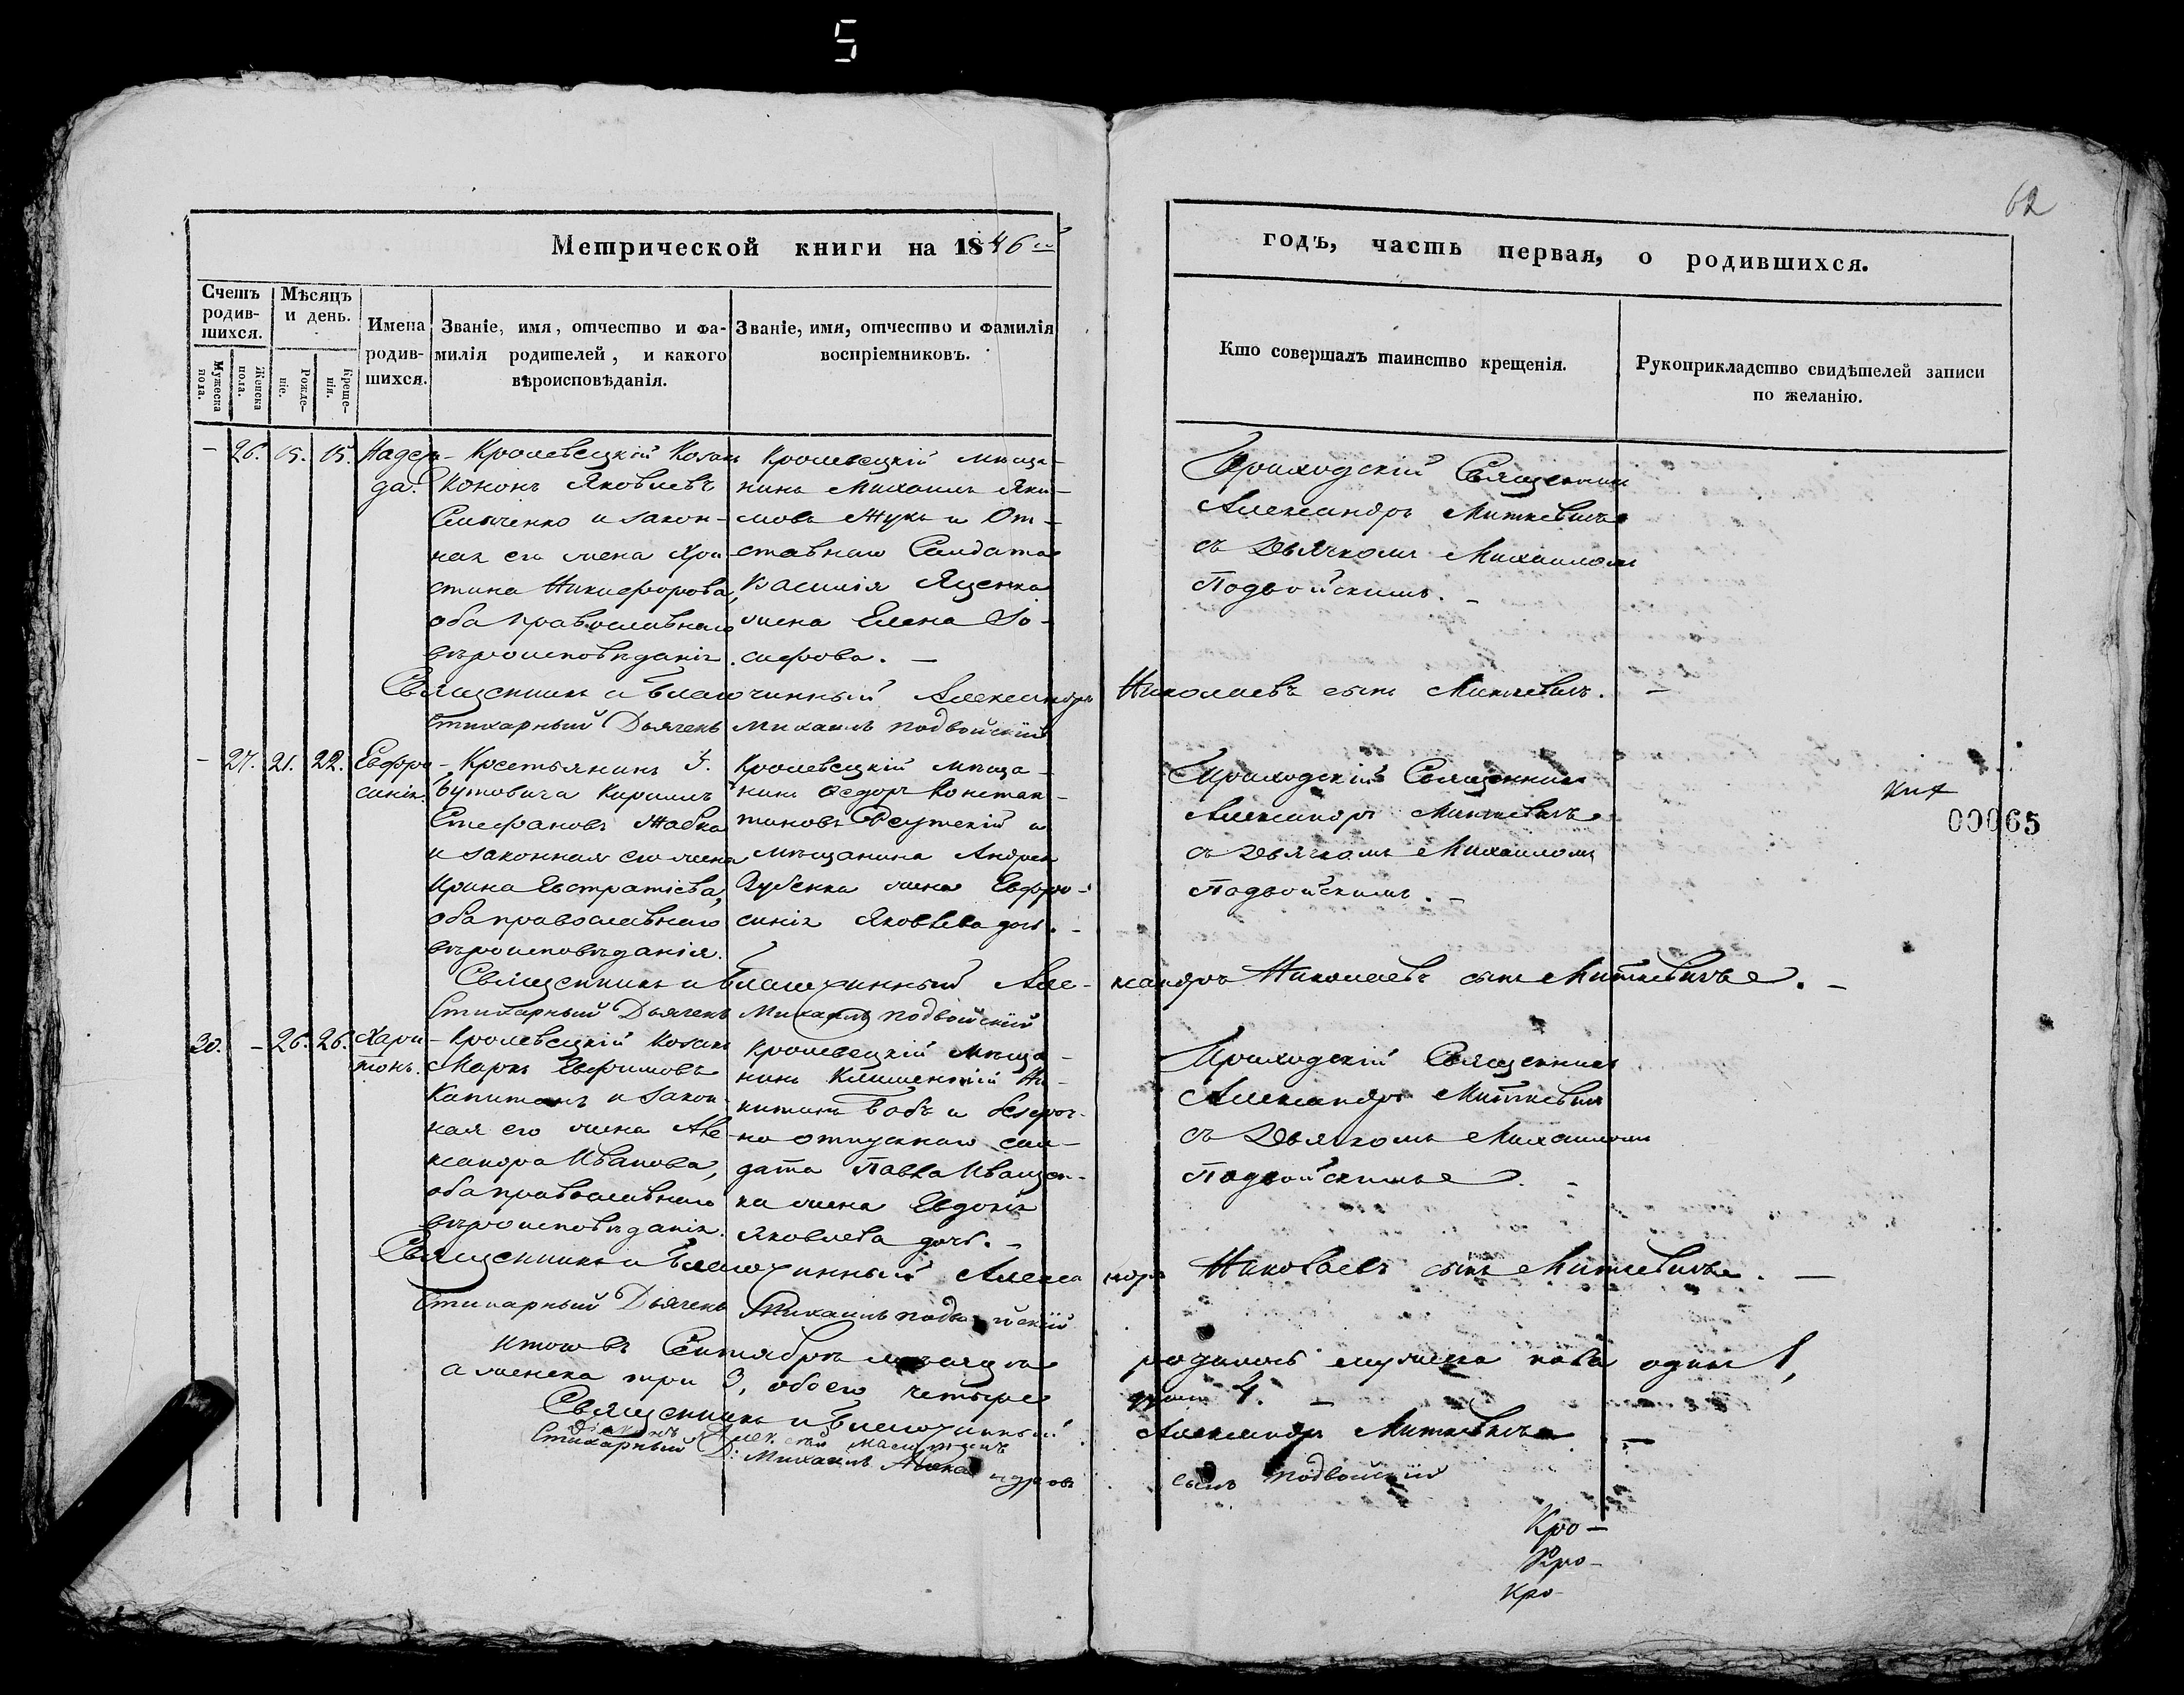 5
62
Метрической книги на 1846й
годъ, часть первая, о родившихся.
Счетъ родив-шихся.
Мужеска пола.
Женска пола.
Мѣсяцъ и день.
Рожде-ніе.
Креще-нія.
Имена родив-шихся.
Званіе, имя, отчество и фа-милія родителей, и какого вѣроисповѣданія.
Званіе, имя, отчество и фамилія воспріемниковъ.
Кто совершалъ таинство крещенія.
Рукоприкладство свидѣтелей записи по желанію.
- 26. 15. 15.
Надеж-
да.
Кролевецкій Козакъ
Кононъ Яковлевъ
и закон-
ная его жена Хри-
стина Никифорова,
оба православнаго
вѣроисповѣданія.
Кролевецкій мѣща-
нинъ Михаилъ Яки-
мовъ Жукъ и От-
ставнаго Солдата
Василія Яценка
жена Елена Іо-
сифова. —
Приходскій Священникъ
Александръ Миткевичъ
съ Дьячкомъ Михаиломъ
Подвойскимъ. -
Священникъ и Благочинный Александръ Николаевъ сынъ Миткевичъ. -
Стихарный Дьячекъ Михаилъ Подвойскій
- 27. 21. 22.
Евфро-
синія.
Крестьянинъ Г.
Бутовича Кириллъ
Стефановъ Жабка
и законная его жена
Ирина Евстратіева,
оба православнаго
вѣроисповѣданія.
Кролевецкій мѣща-
нинъ Ѳедоръ Констан-
тиновъ и
мѣщанина Андрея
Губенка жена Евфро-
синія Яковлева дочь. -
Приходскій Священникъ
Александръ Миткевичъ
съ Дьячкомъ Михаиломъ
Подвойскимъ. -
00065
Священникъ и Благочинный Александръ Николаевъ сынъ Миткевичъ. -
Стихарный Дьячекъ Михаилъ Подвойскій
30. - 26. 26.
Хари-
тонъ.
Кролевецкій Козакъ
Маркъ Евфимовъ
Капитанъ и закон-
ная его жена Але-
ксандра Иванова,
оба православнаго
вѣроисповѣданія.
Кролевецкій мѣща-
нинъ Климентій Ни-
китинъ Бобъ и безсроч-
но отпускнаго сол-
дата Павла Иващен-
ка жена Евдокія
Яковлева дочь. -
Приходскій Священникъ
Александръ Миткевичъ
съ Дьячкомъ Михаиломъ
Подвойскимъ. -
Священникъ и Благочинный Александръ Николаевъ сынъ Миткевичъ. —
Стихарный Дьячекъ Михаилъ Подвойскій
Итого въ Сентябрѣ мѣсяцѣ родилось мужеска пола одинъ 1,
а женска три 3, обоего четыре душъ 4. -
Священникъ и Благочинный Александръ Миткевичъ —
Діаконъ
Стихарный Д: Михаилъ Александровъ сынъ Подвойскій
Кро-
Кро-
Кро-